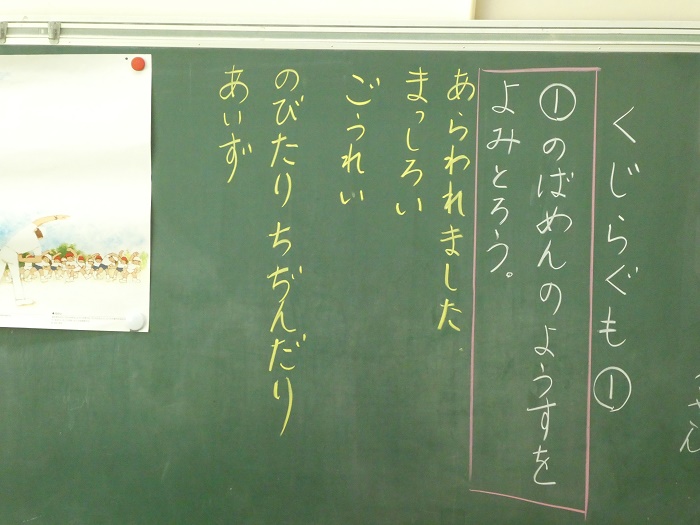 くじらぐも①
①のばめんのようすを
よみとろう。
あらわれました
まっしろい
ごうれい
のびたり ちぢんだり
あいず